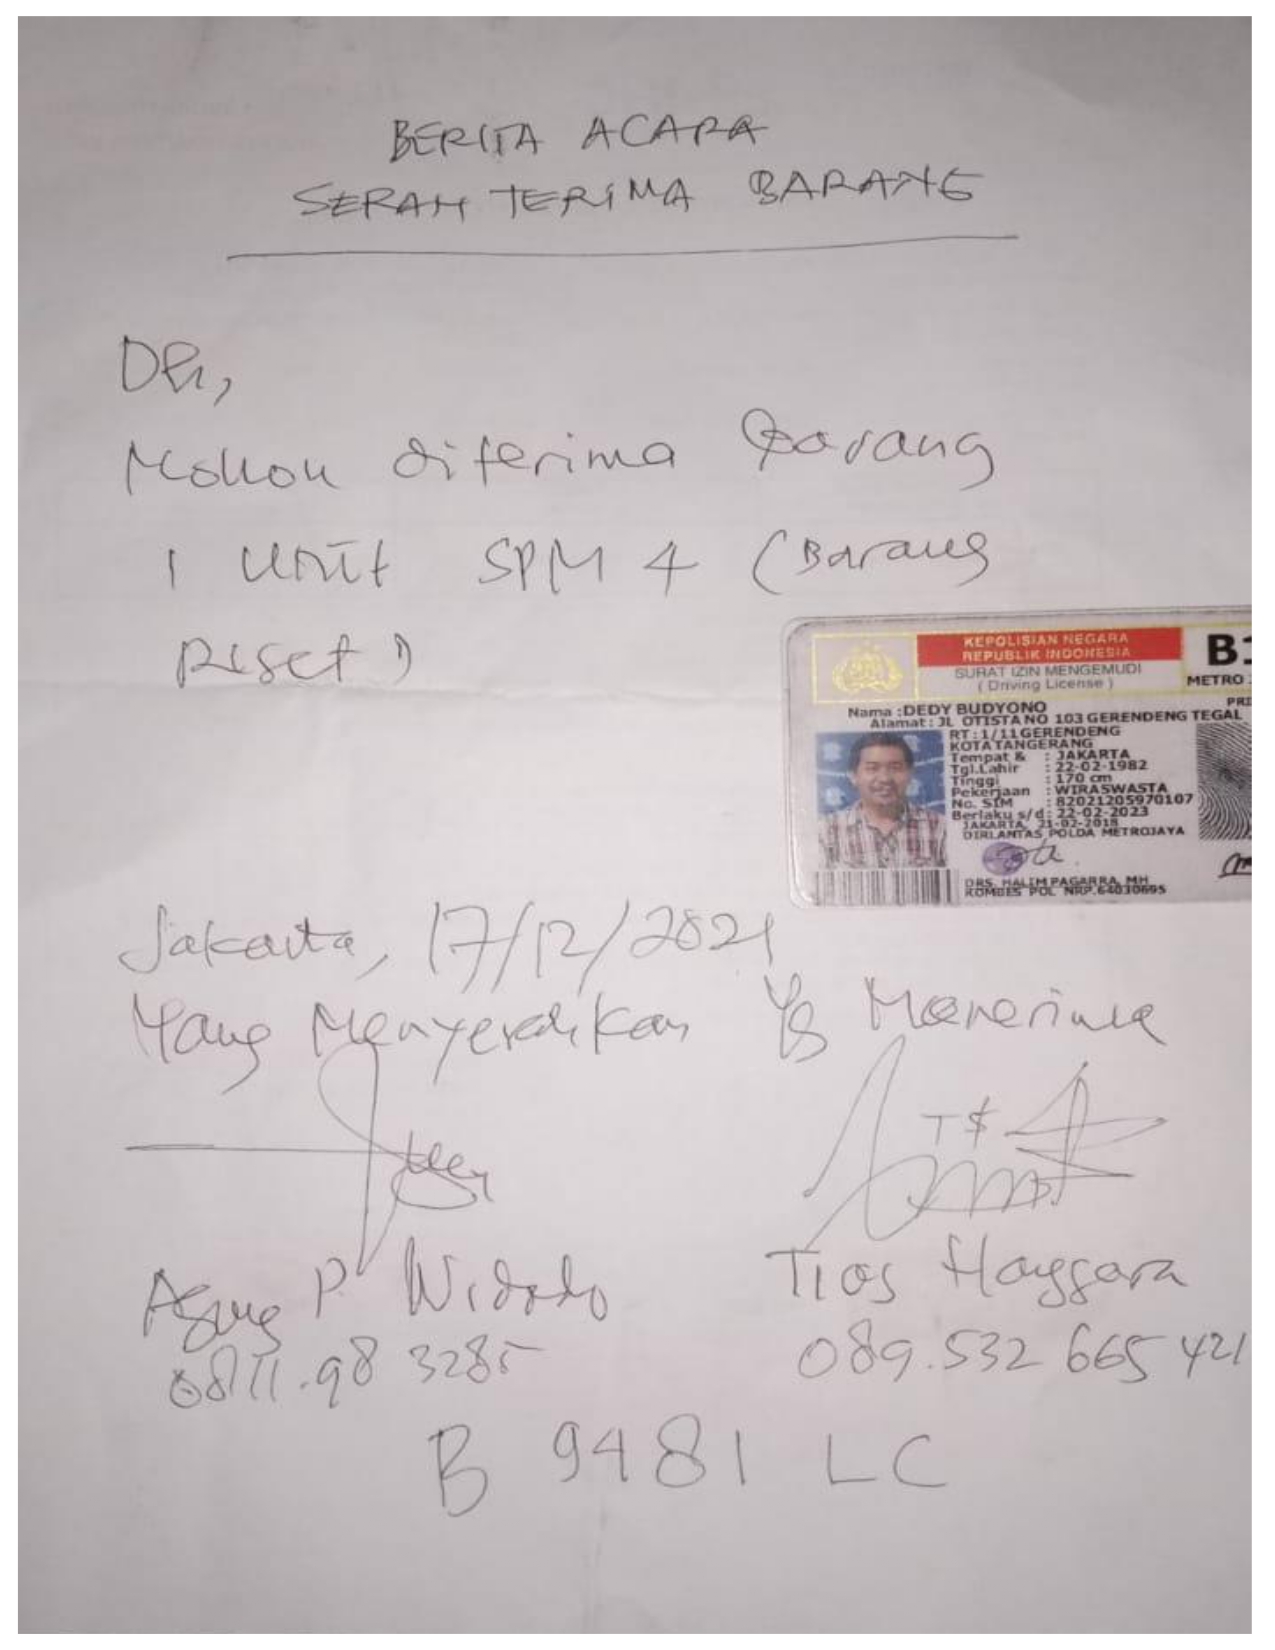 BERITA ACARA
SERAH TERIMA BARANG
Dh,
Mohon diterima Barang
1 Unit SPM 4 (Barang
Riset)
KEPOLISIAN NEGARA
REPUBLIK INDONESIA
SURAT IZIN MENGEMUDI
( Driving License )
METRO
Nama : DEDY BUDYONO
Alamat : JL OTISTA NO 103 GERENDENG TEGAL
RT : 1/11 GERENDENG
KOTA TANGERANG
Tempat & : JAKARTA
Tgl.Lahir : 22-02-1982
Tinggi : 170 cm
Pekerjaan : WIRASWASTA
No. SIM : 82021205970107
Berlaku s/d : 22-02-2023
JAKARTA, 21-02-2018
DIRLANTAS POLDA METROJAYA
DRS. HALIM PAGARRA, MH
KOMBES POL NRP.64030695
Jakarta, 17/12/2021
Yang Menyerahkan Yg Menerima
Agung P. Widodo Tios Hanggara
0811.98 3285 089.532 665 421
B 9481 LC